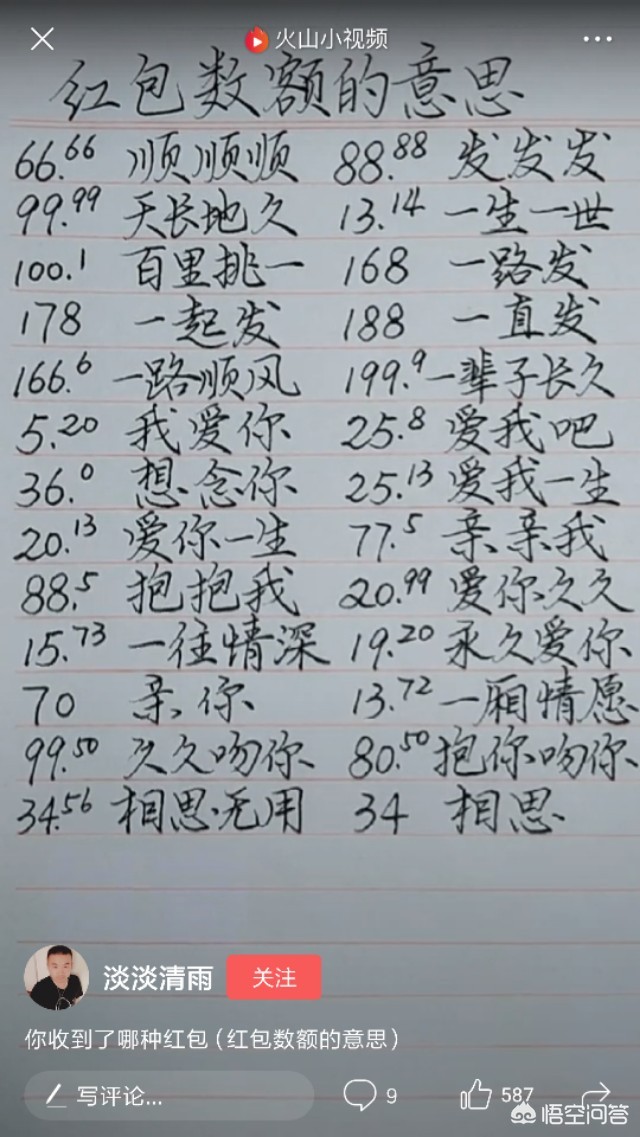 火山小视频
红包数额的意思
66.66 顺顺顺 88.88 发发发
99.99 天长地久 13.14 一生一世
100.1 百里挑一 168 一路发
178 一起发 188 一直发
166.6 一路顺风 199.9 一辈子长久
5.20 我爱你 25.8 爱我吧
36.0 想念你 25.13 爱我一生
20.13 爱你一生 77.5 亲亲我
88.5 抱抱我 20.99 爱你久久
15.73 一往情深 19.20 永久爱你
70 亲你 13.72 一厢情愿
99.50 久久吻你 80.50 抱你吻你
34.56 相思无用 34 相思
淡淡清雨 关注
你收到了哪种红包（红包数额的意思）
写评论... 9 587
悟空问答